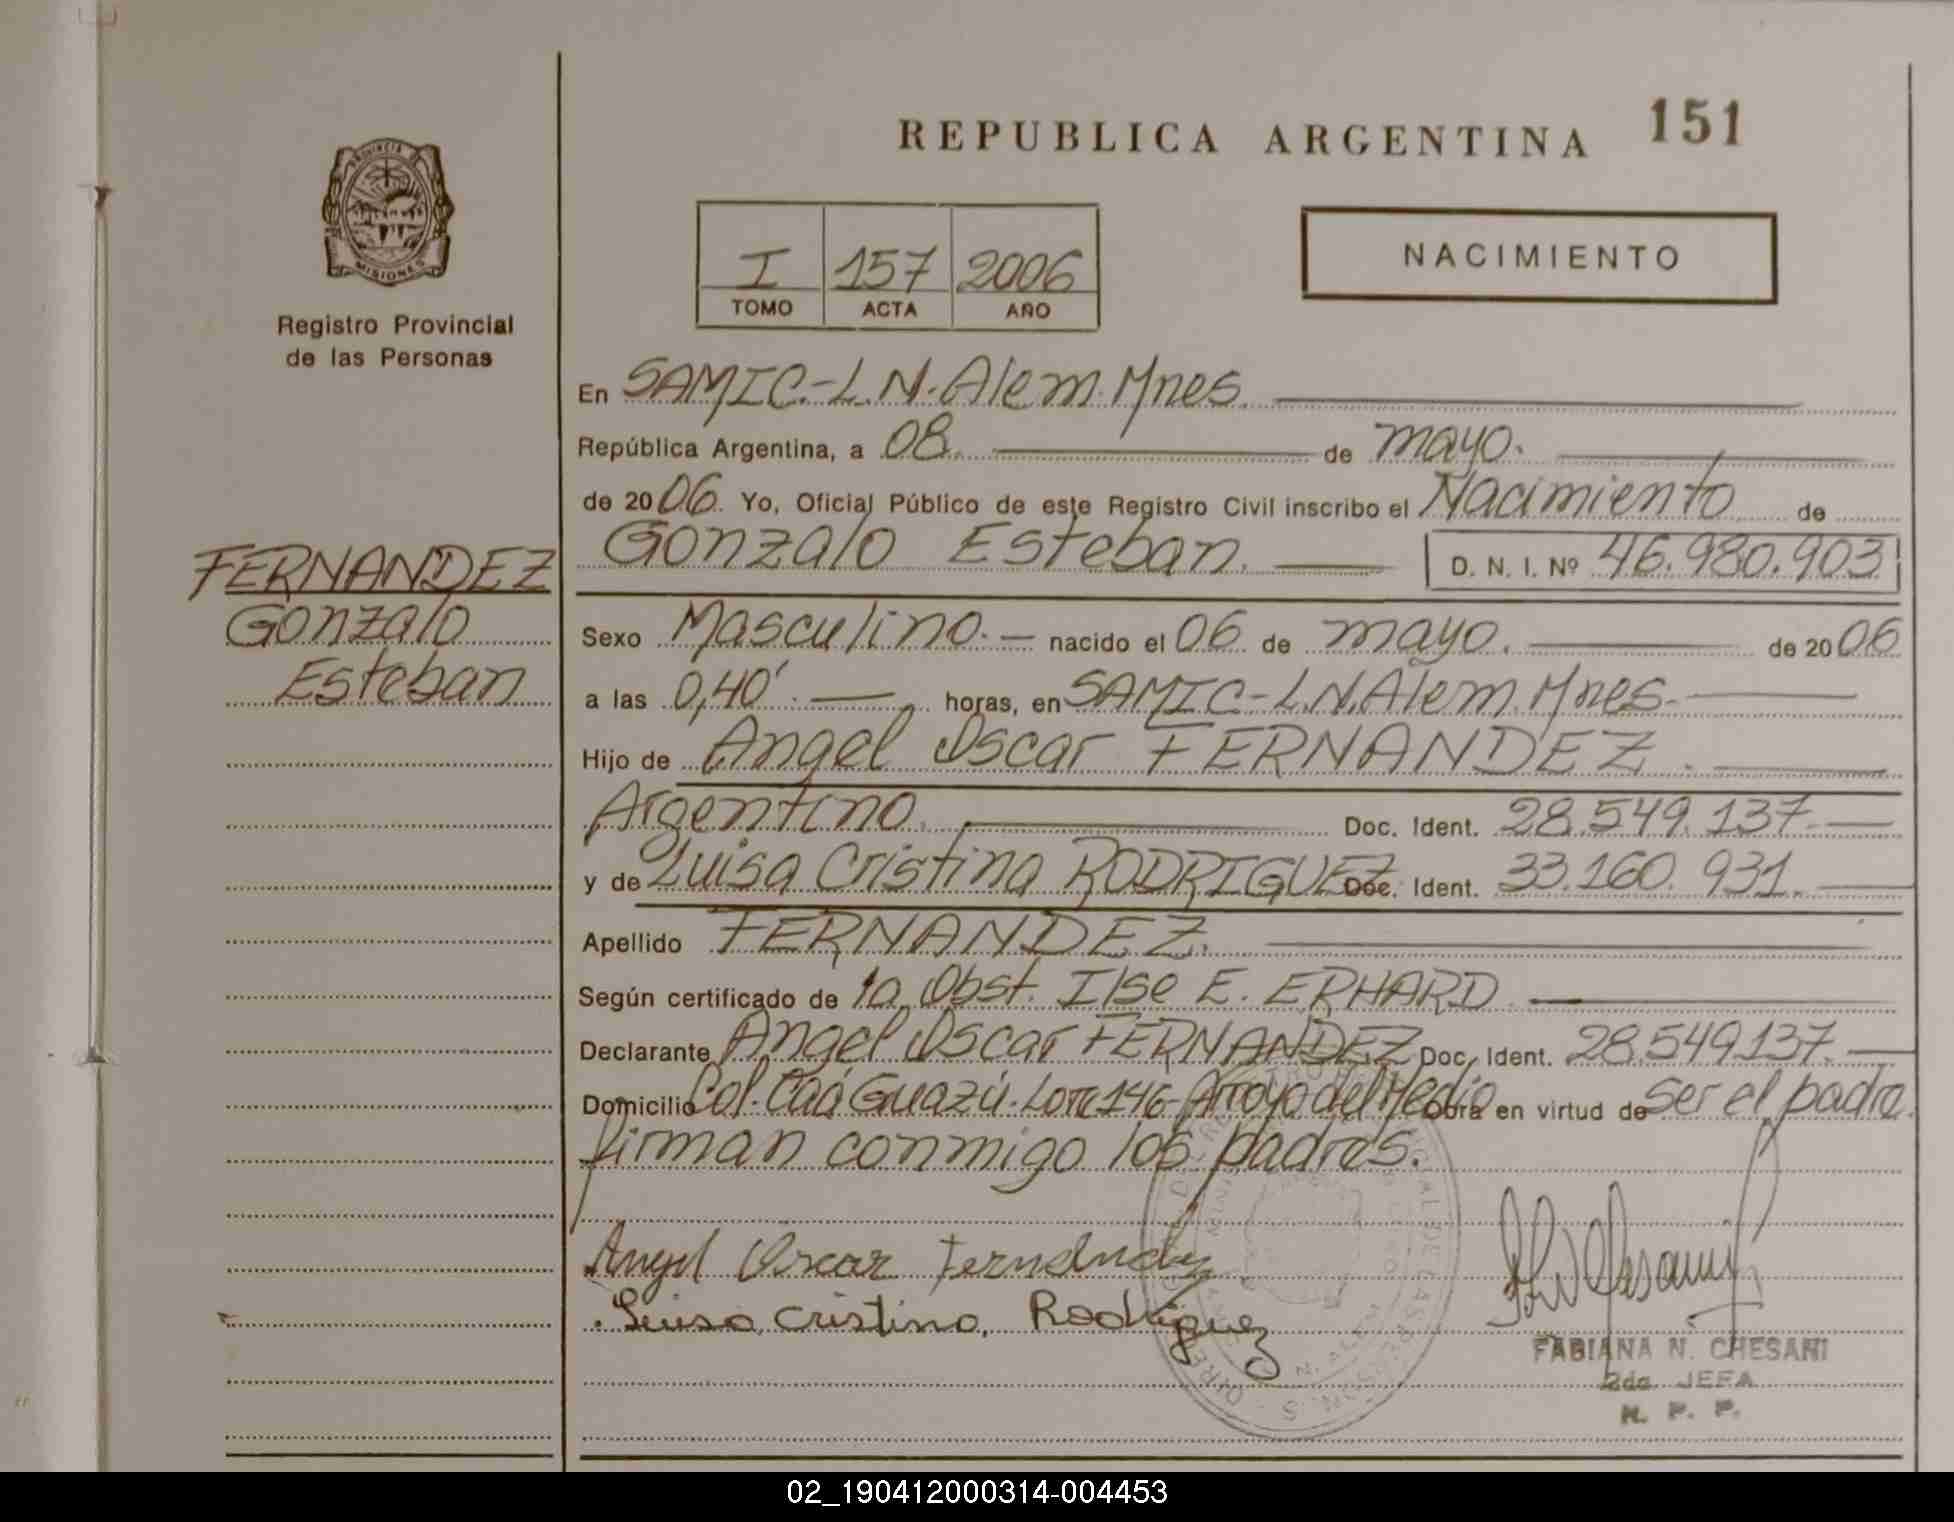 REPUBLICA ARGENTINA 151
PROVINCIA DE
MISIONES
Registro Provincial
de las Personas
I 157 2006
TOMO ACTA AÑO
NACIMIENTO
En SAMIC.-L.N.Alem.Mnes.
República Argentina, a 08. de mayo.
de 2006. Yo, Oficial Público de este Registro Civil inscribo el Nacimiento de
FERNANDEZ
Gonzalo
Esteban
Gonzalo Esteban. D. N. I. Nº 46.980.903
Sexo Masculino.- nacido el 06 de mayo. de 2006
a las 0,40'. horas, en SAMIC-L.N.Alem.Mnes.
Hijo de Angel Oscar FERNANDEZ.
Argentino. Doc. Ident. 28.549.137.
y de Luisa Cristina RODRIGUEZ Doc. Ident. 33.160.931.
Apellido FERNANDEZ.
Según certificado de la Obst. Ilse E. ERHARD
Declarante Angel Oscar FERNANDEZ Doc. Ident. 28.549.137.
Domicilio Col. Caá Guazú. Lote 146-Arroyo del Medio Obra en virtud de ser el padre.
firman conmigo los padres.
Angel Oscar Fernandez
Luisa Cristina Rodriguez
FABIANA N. CHESANI
2da JEFA
R. P. P.
02_190412000314-004453